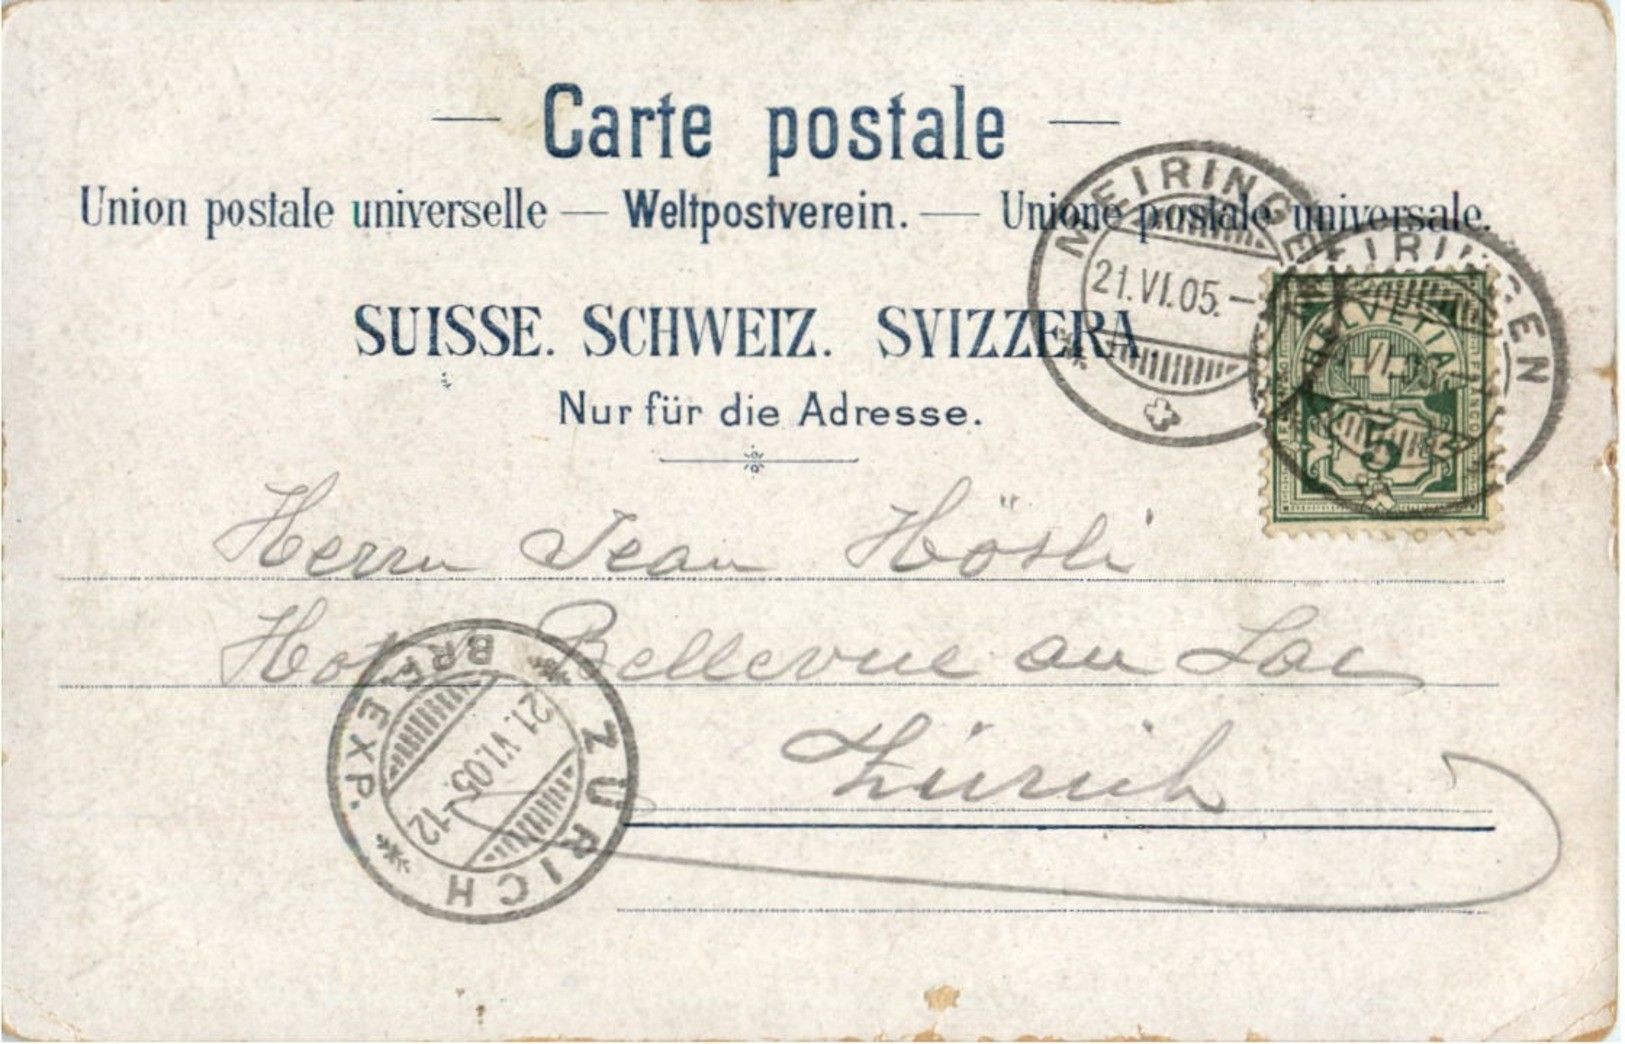 — Carte postale —
Union postale universelle — Weltpostverein. — Unione postale universale.
SUISSE. SCHWEIZ. SVIZZERA
Nur für die Adresse.
MEIRINGEN
21.VI.05.–
MEIRINGEN
VI.
HELVETIA
FRANCO
5
Herrn Jean Hösli
Hotel Bellevue au Lac
Zürich
ZÜRICH
BRF. EXP.
21.VI.05.–12